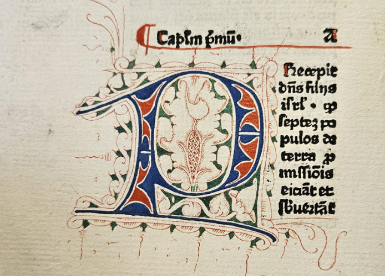 Capl̄m p̄mū· A
P Recepit
dn̄s filiis
isrl̄· ꝙ
septeʒ po
pulos de
terra ꝓ
missiōis
eiciāt et
sb̄uertāt